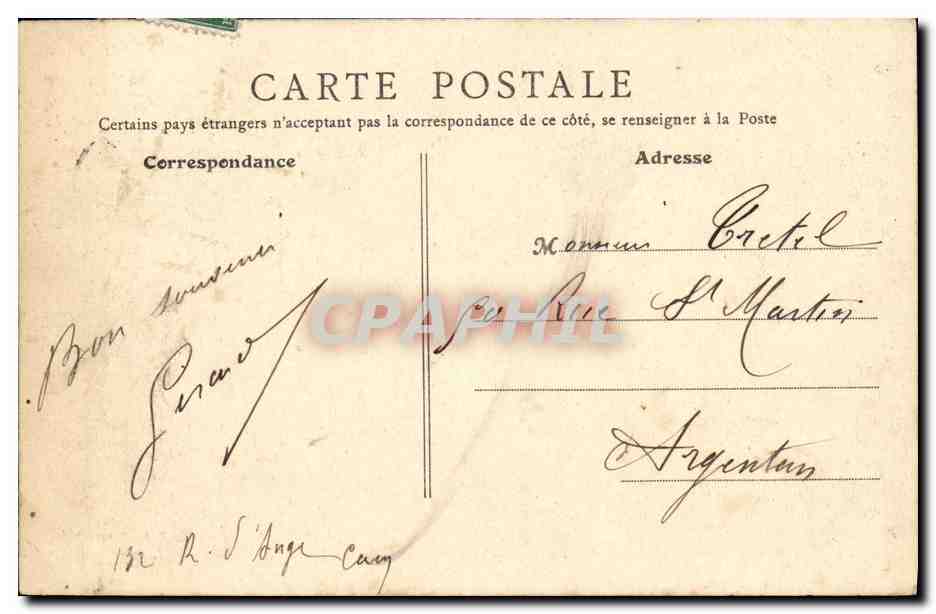 CARTE POSTALE
Certains pays étrangers n'acceptant pas la correspondance de ce côté, se renseigner à la Poste
Correspondance
Adresse
Bon souvenir
Girard
Monsieur Tretel
Rue St Martin
Argentan
132 R. d'Auge Caen
CPAPHIL